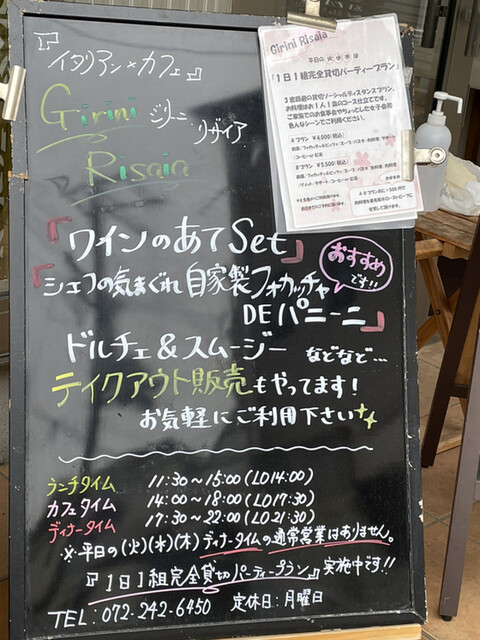 『イタリアン×カフェ』
Girini ジリーニ
Risaia リザイア
『ワインのあてSet』
『シェフの気まぐれ 自家製フォカッチャ
DEパニーニ』
おすすめ
です!!
ドルチェ&スムージー などなど…
テイクアウト販売もやってます!
お気軽にご利用下さい
ランチタイム 11:30～15:00(LO14:00)
カフェタイム 14:00～18:00(LO17:30)
ディナータイム 17:30～22:00(LO21:30)
※平日の(火)(水)(木)ディナータイムの通常営業はありません。
『1日1組完全貸切パーティープラン』実施中です!!
TEL:072-242-6450 定休日:月曜日
Girini Risaia
平日の火水木は
「1日1組完全貸切パーティープラン」
Aプラン ¥4,000(税込)
Bプラン ¥5,500(税込)